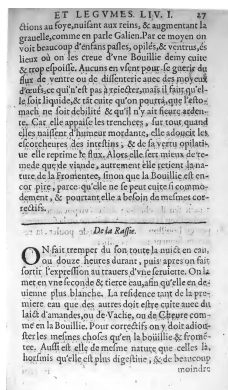 ET LEGVMES. LIV. I. 27
ctions au foye, nuisant aux reins, & augmentant la
grauelle, comme en parle Galien. Par ce moyen on
voit beaucoup d'enfans pasles, opilés, & ventrus, és
lieux où on les creue d'vne Bouillie demy cuite
& trop espoisse. Aucuns en vsent pour se guerir du
flux de ventre ou de dissenterie auec des moyeux
d'œufs, ce qui n'est pas à reiecter, mais il faut qu'el-
le soit liquide, & tāt cuite qu'on pourra, que l'esto-
mach ne soit debilité & qu'il n'y ait fieure arden-
te. Car elle appaise les trenchees, sur tout quand
elles naissent d'humeur mordante, elle adoucit les
escorcheures des intestins, & de sa vertu opilati-
ue elle reprime le flux. Alors elle sert mieux de re-
mede que de viande, autrement elle retient la na-
ture de la Fromentee, sinon que la Bouillie est en-
cor pire, parce qu'elle ne se peut cuire si commo-
dement, & pourtant elle a besoin de mesmes cor-
rectifs.
De la Rassie.
ON fait tremper du son toute la nuict en eau,
ou douze heures durant, puis apres on fait
sortir l'expression au trauers d'vne seruiette. On la
met en vne seconde & tierce eau, afin qu'elle en de-
uienne plus blanche. La residence tant de la pre-
miere eau que des autres doit estre cuite auec du
laict d'amandes, ou de Vache, ou de Cheure com-
me en la Bouillie. Pour correctifs on y doit adiou-
ster les mesmes choses qu'en la bouillie & fromē-
tee. Aussi est elle de mesme nature que celles là,
horsmis qu'elle est plus digestiue, & de beaucoup
moindre